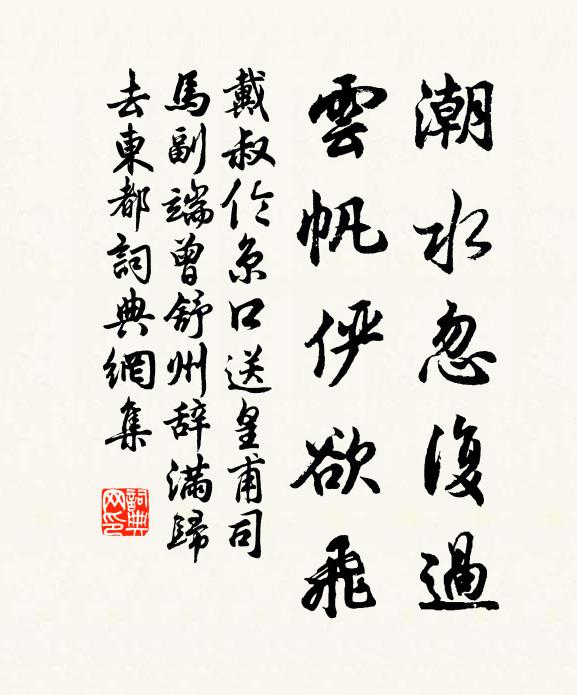 潮水忽復過
雲帆俨欲飛
戴叔伦京口送皇甫司
馬副端曾舒州辞滿歸
去東都詞典網集
詞典
网印